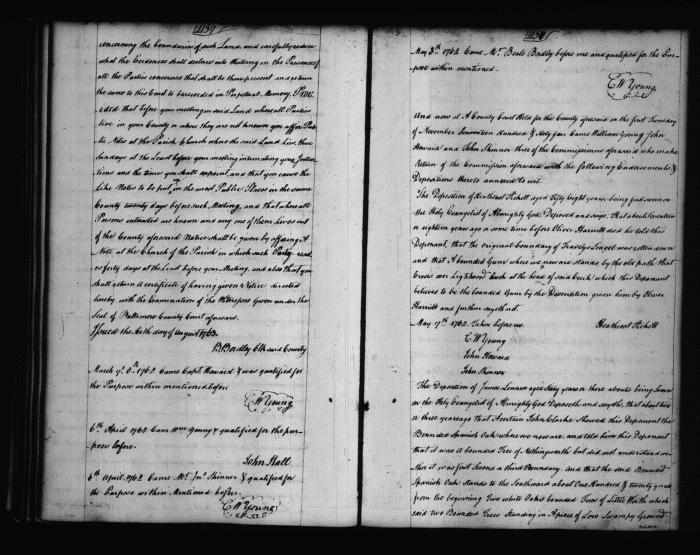 concerning the Boundaries of such Land, and carefully reduce
what the Evidences shall declare into Writing in the Presence of
all the Parties concerned that shall be there present and return
the same to this Court to be recorded in Perpetual Memory, Prov-
ided that before you meeting on said Land where all Parties
live in your County or where they are not known you affix Pub-
lic Notes at the Parish Church where the said Land lies, three
Sundays at the Least before your meeting intimating your Inten-
tions and the time you shall appoint, and that you cause the
like Notes to be put in the most Public Places in the same
County twenty days before such Meeting, and that where all
Persons intrusted are known and any one of them lives out
of the County aforesaid Notice shall be given by affixing A
Note at the Church of the Parish in which such Party resid-
es forty days at the Least before your Meeting, and also that you
shall return A certificate of having given A Notice directed
hereby with the Examination of the Witnesses Given under the
Seal of Baltimore County Court aforesaid.
Issued the day of August 1763
B. Bordley Clk said County
March 1762 Came Capt. Howard & was qualified for
the Purpose within mentioned before
C W Young
6th April 1762 Cam Wm Young & qualified for the pur-
pose before.
John Hall
6th April 1762 Came Mr. Jno Skinner & qualified for
the Purpose within Mentioned before.
C W Young
May 3th 1762 Came Mr. Beale Bordley before me and qualified for the Pur-
pose within mentioned
C W Young
And now at A County Court Held for the County aforesaid on the first Tuesday
of November Seventeen Hundred & Sixty four Came William Young John
Howard and John Skinner three of the Commissioners aforesaid who make
Return of the Commission aforesaid with the following Endorsements &
Depositions thereto annexed to wit.
The Deposition of Heathcoat Pickett aged Fifty Eight years being first sworn on
the Holy Evangelist of Almighty God Deposed and says That about seventeen
or eighteen years ago or some time before Oliver Harriott died he told this
Deponant, that the original boundary of was rotten down
and that A bounded Gum where we now are Stands by the old path that
Cross over Lightwood Creek at the head of said Creek which this Deponant
believes to be the bounded Gum by the Description given him by Oliver
Harriott and further sayeth not.
May 17th 1762. Taken before us. Heathcoat Pickett
C W Young
John Howard
John Skinner
The Deposition of James Lenner aged Sixty years or there abouts being Sworn
on the Holy Evangelist of Almighty God Deposeth and sayeth, that about two
or three years ago that A certain John Clarke shewed this Deponant the
Bounded Spanish Oak where we now are, and told him this Deponant
that it was A bounded Tree of Nothingworth but did not understand whe-
ther it was first Second or third Boundary. And that the said Bounded
Spanish Oak Stands to the Southward about One Hundred & twenty yards
from the beginning Two white Oaks bounded Trees of Little Worth which
said two Bounded Trees Standing in A piece of Low Swampy Ground
near